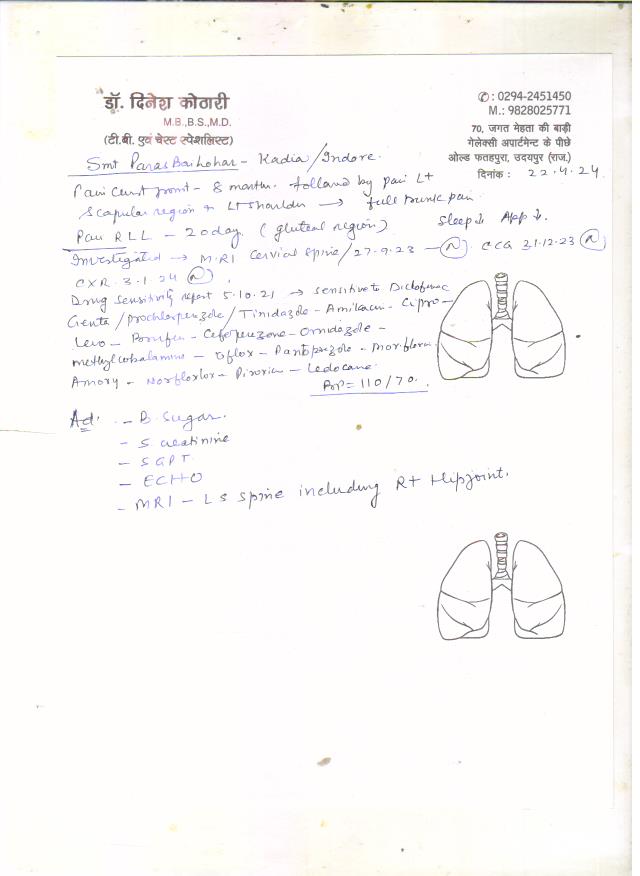 डॉ. दिनेश कोठारी
M.B.,B.S.,M.D.
(टी.बी. एवं चेस्ट स्पेशलिस्ट)
✆: 0294-2451450
M.: 9828025771
70, जगत मेहता की बाड़ी
गेलेक्सी अपार्टमेन्ट के पीछे
ओल्ड फतहपुरा, उदयपुर (राज.)
दिनांक : 22.4.24
Smt Paras Bai Lohar - Kadia/Indore.
Pain Chest front - 8 months. followed by pain Lt
Scapular region + Lt shoulder → full trunk pain
Pain RLL - 20 day. (gluteal region) Sleep↓ App↓.
Investigated → M.R.I Cervical Spine/27.9.23 - (N) 21.12.23 (N)
CXR. 3.1.24 (N),
Drug sensitivity report 5.10.21 → sensitive to Diclofenac
Genta/Prochlorperazole/Tinidazole - Amikacin - Cipro -
Levo - - Cefoperazone - Ornidazole -
methylcobalamine - Oflox - Pantoprazole -
- - - Ledocane.
= 110/70.
Ad. - B. Sugar.
- S creatinine
- SGPT
- ECHO
- MRI - LS spine including Rt Hip joint.